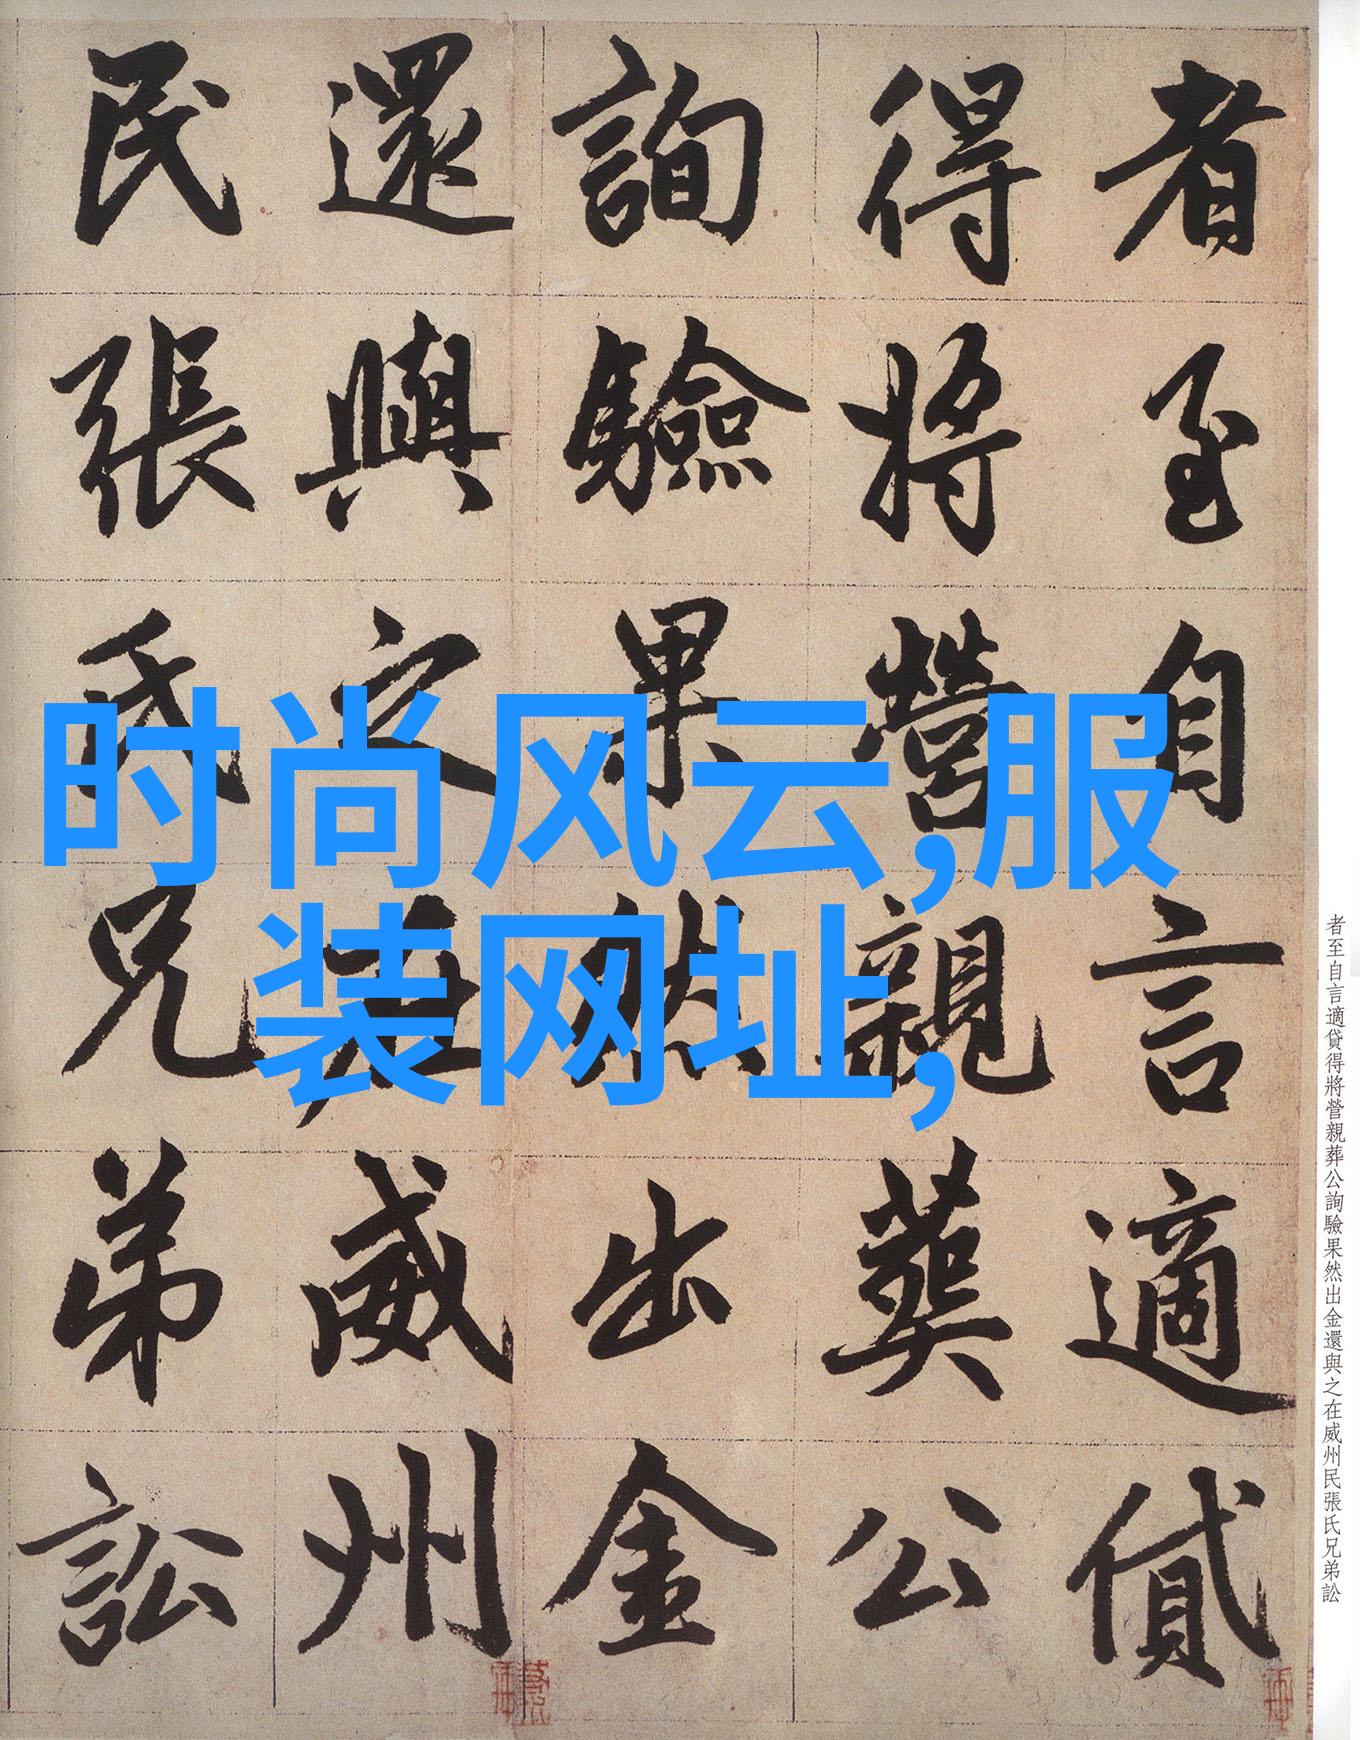 者至自言適貸
得將營親葬公
詢驗果然出金
還與之在威州
民張氏兄弟訟
时尚风云,服
装网址,
者至自言適貸得將營親葬公詢驗果然出金還與之在威州民張氏兄弟訟